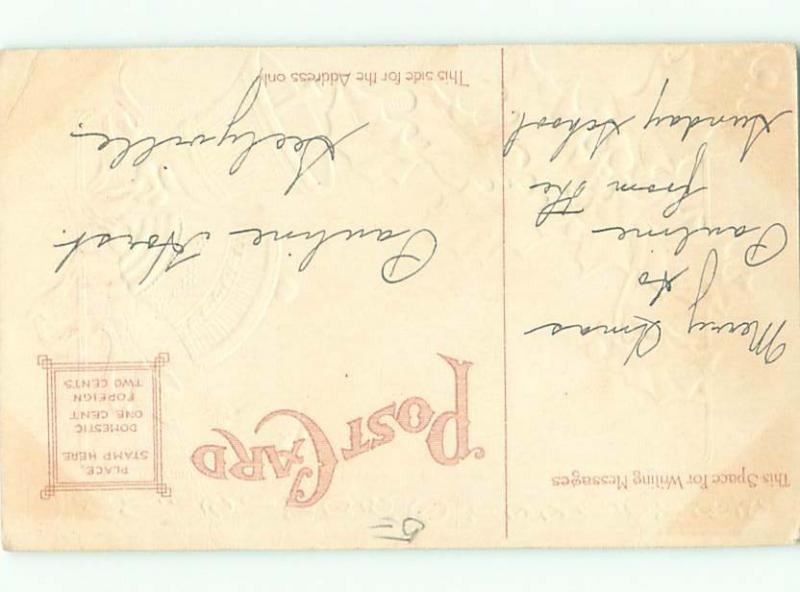 This Space for Writing Messages
POST CARD
PLACE,
STAMP HERE
DOMESTIC
ONE CENT
FOREIGN
TWO CENTS
Merry Xmas
to
Pauline
from the
Sunday School.
Pauline Horst.
Seelyville.
This side for the Address only
5-